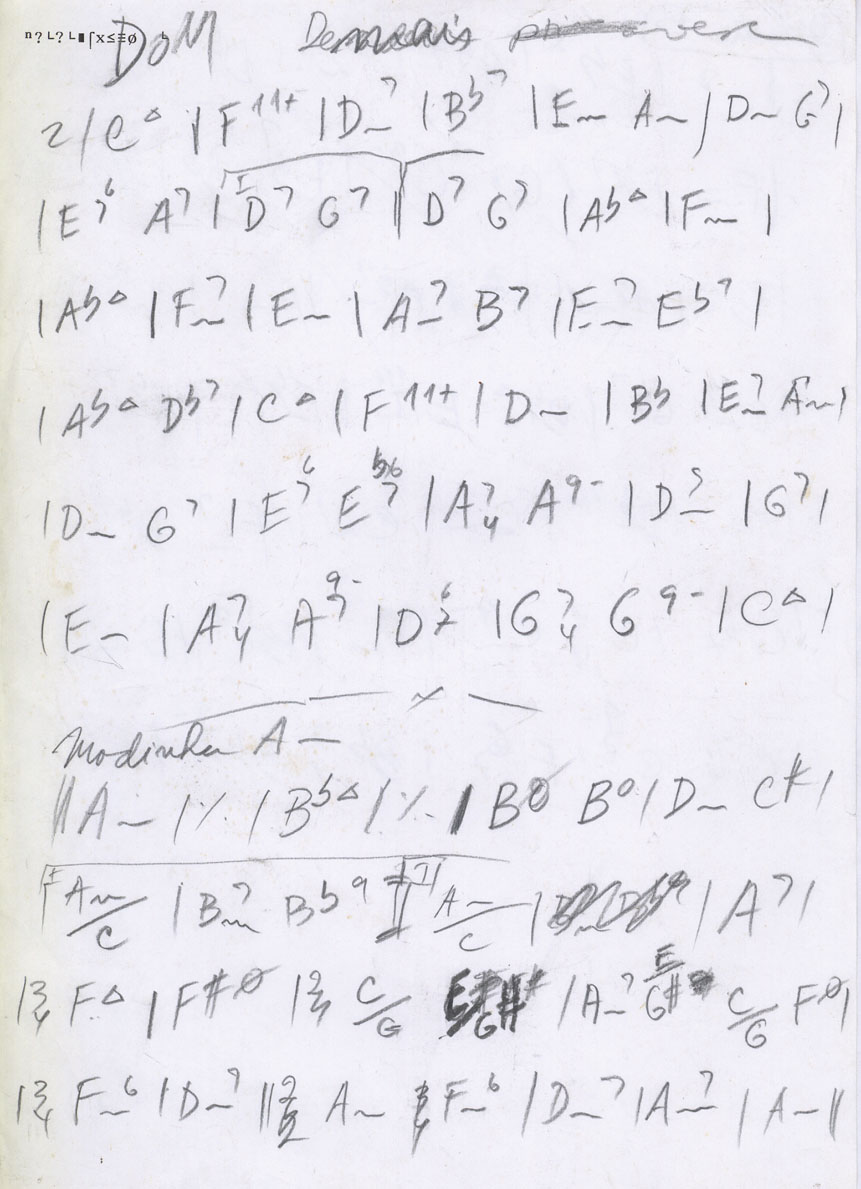 DoM
2/ C△ | F11+ | D–7 | Bb7 | E– A– | D– G7 |
| E67 A7 | I D7 G7 || D7 G7 | Ab△ | F– |
| Ab△ | F–7 | E– | A–7 B7 | E–7 Eb7 |
| Ab△ Db7 | C△ | F11+ | D– | Bb | E–7 A– |
| D– G7 | E67 Eb67 | A74 A9- | D– | G7 |
| E– | A74 A9-7 | D67 | G74 G9- | C△ |
x
Modinha A–
|| A– | ٪ | Bb△ | ٪ | BØ Bo | D– C# |
I A–/C | B–7 Bb9 || II A–/C | A7 |
| 3/4 F△ | F#Ø | 2/4 C/G | A–7 E/G# C/G FØ |
| 3/4 F–6 | D–7 || 2/2 A– F–6 | D–7 | A–7 | A– ||